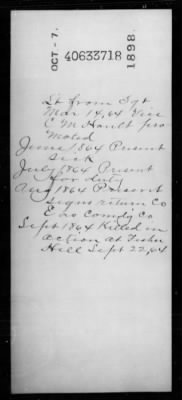 OCT - 7.
40633718
1898.
Lt from Sgt
Mar 14, 64 Vice
C M Hoult pro
moted
June 1864 Present
sick
July 1864 Present
for duty
Aug 1864 Present
signs return Co
E as Comd'g Co
Sept 1864 Killed in
action at Fisher
Hill Sept 22, 64